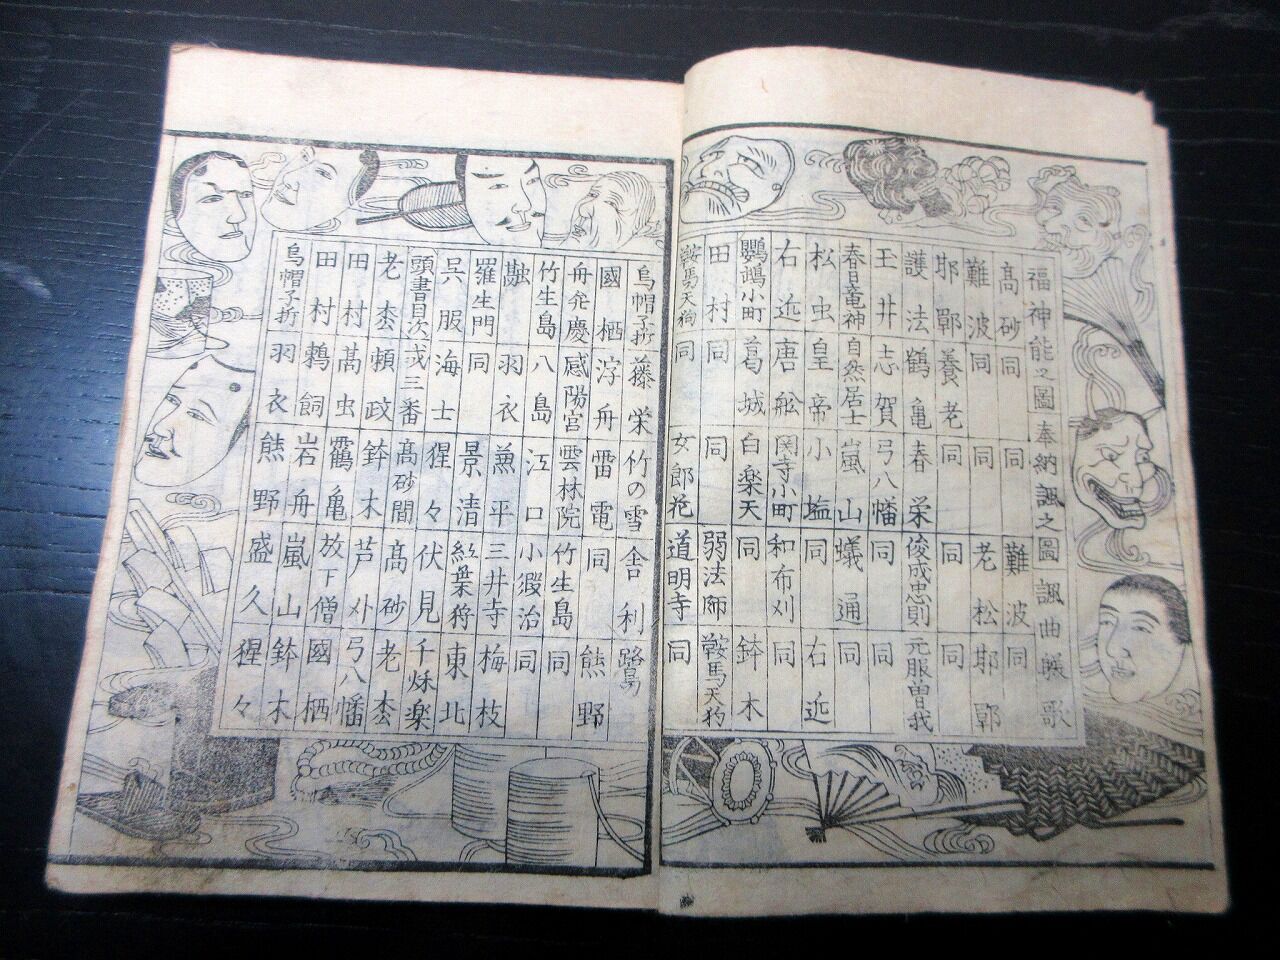 福神能之圖 奉納諷之圖 諷曲 歌
高砂 同 同 難波 同
難波 同 同 老松 耶郢
耶鄲 養老 同 同 同
護法 鶴亀 春栄 俊成忠則 元服曽我
玉井 志賀 弓八幡 同 同
春日竜神 自然居士 嵐山 蟻通 同
松虫 皇帝 小塩 同 右近
右近 唐舩 関寺小町 和布刈 同
鸚鵡小町 葛城 白楽天 同 鉢木
田村 同 同 弱法師 鞍馬天狗
鞍馬天狗 同 女郎花 道明寺 同
烏帽子折 藤栄 竹の雪 舎利 鷺
國栖 浮舟 雷電 同 熊野
舟弁慶 感陽宮 雲林院 竹生島 同
竹生島 八島 江口 小鍛治 同
融 羽衣 兼平 三井寺 梅枝
羅生門 同 景清 紅葉狩 東北
呉服 海士 猩々 伏見 千秌楽
頭書目次 弍三番 高砂間 高砂 老松
老枩 頼政 鉢木 芦刈 弓八幡
田村 高虫 靍亀 放下僧 國栖
田村 鵜飼 岩舟 嵐山 鉢木
烏帽子折 羽衣 熊野 盛久 猩々